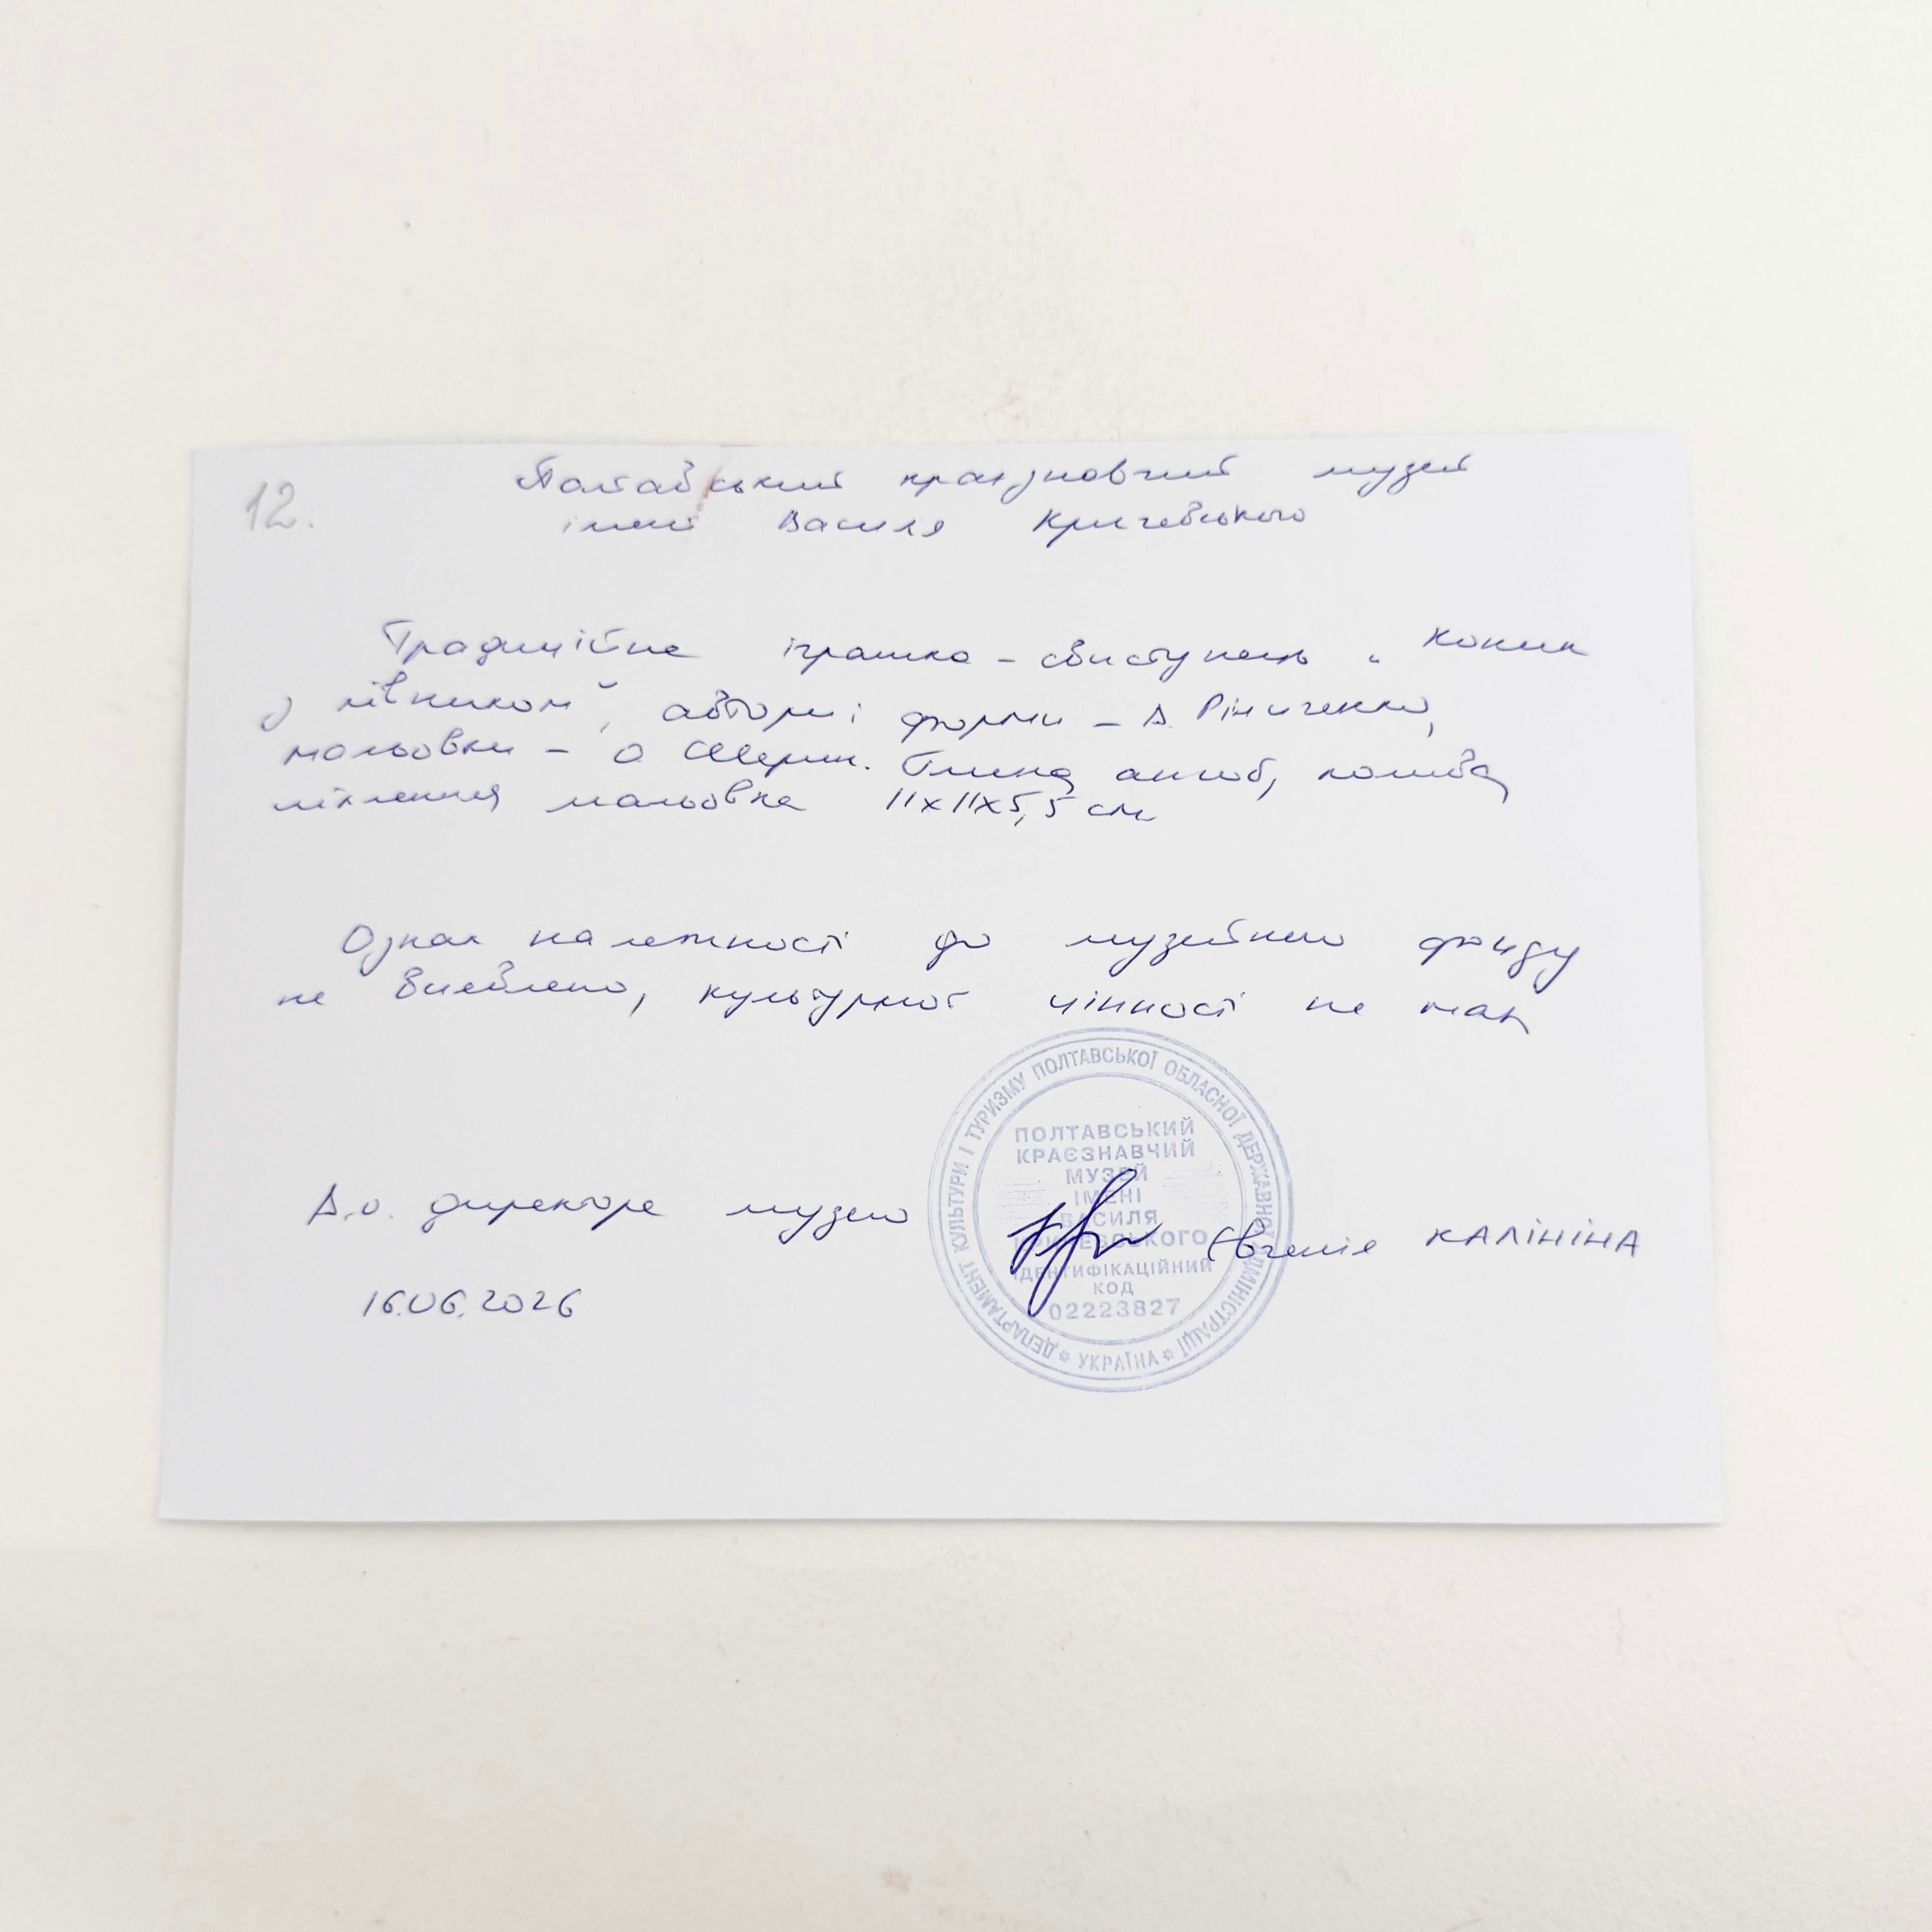 12.
Полтавський краєзнавчий музей
імені Василя Кричевського
Традиційна іграшка - свистунець „Коник
з півником", автори: форми - В. Різниченко,
мальовки - О. Шкурпи. Глина, ангоб, полива,
ліплення, мальовка 11х11х5,5 см
Ознак належності до музейного фонду
не виявлено, культурної цінності не має
В.о. директора музею
Євгенія КАЛІНІНА
16.06.2026
ДЕПАРТАМЕНТ КУЛЬТУРИ І ТУРИЗМУ ПОЛТАВСЬКОЇ ОБЛАСНОЇ ДЕРЖАВНОЇ АДМІНІСТРАЦІЇ * УКРАЇНА *
ПОЛТАВСЬКИЙ
КРАЄЗНАВЧИЙ
МУЗЕЙ
ІМЕНІ
ВАСИЛЯ
КРИЧЕВСЬКОГО
ІДЕНТИФІКАЦІЙНИЙ
КОД
02223827